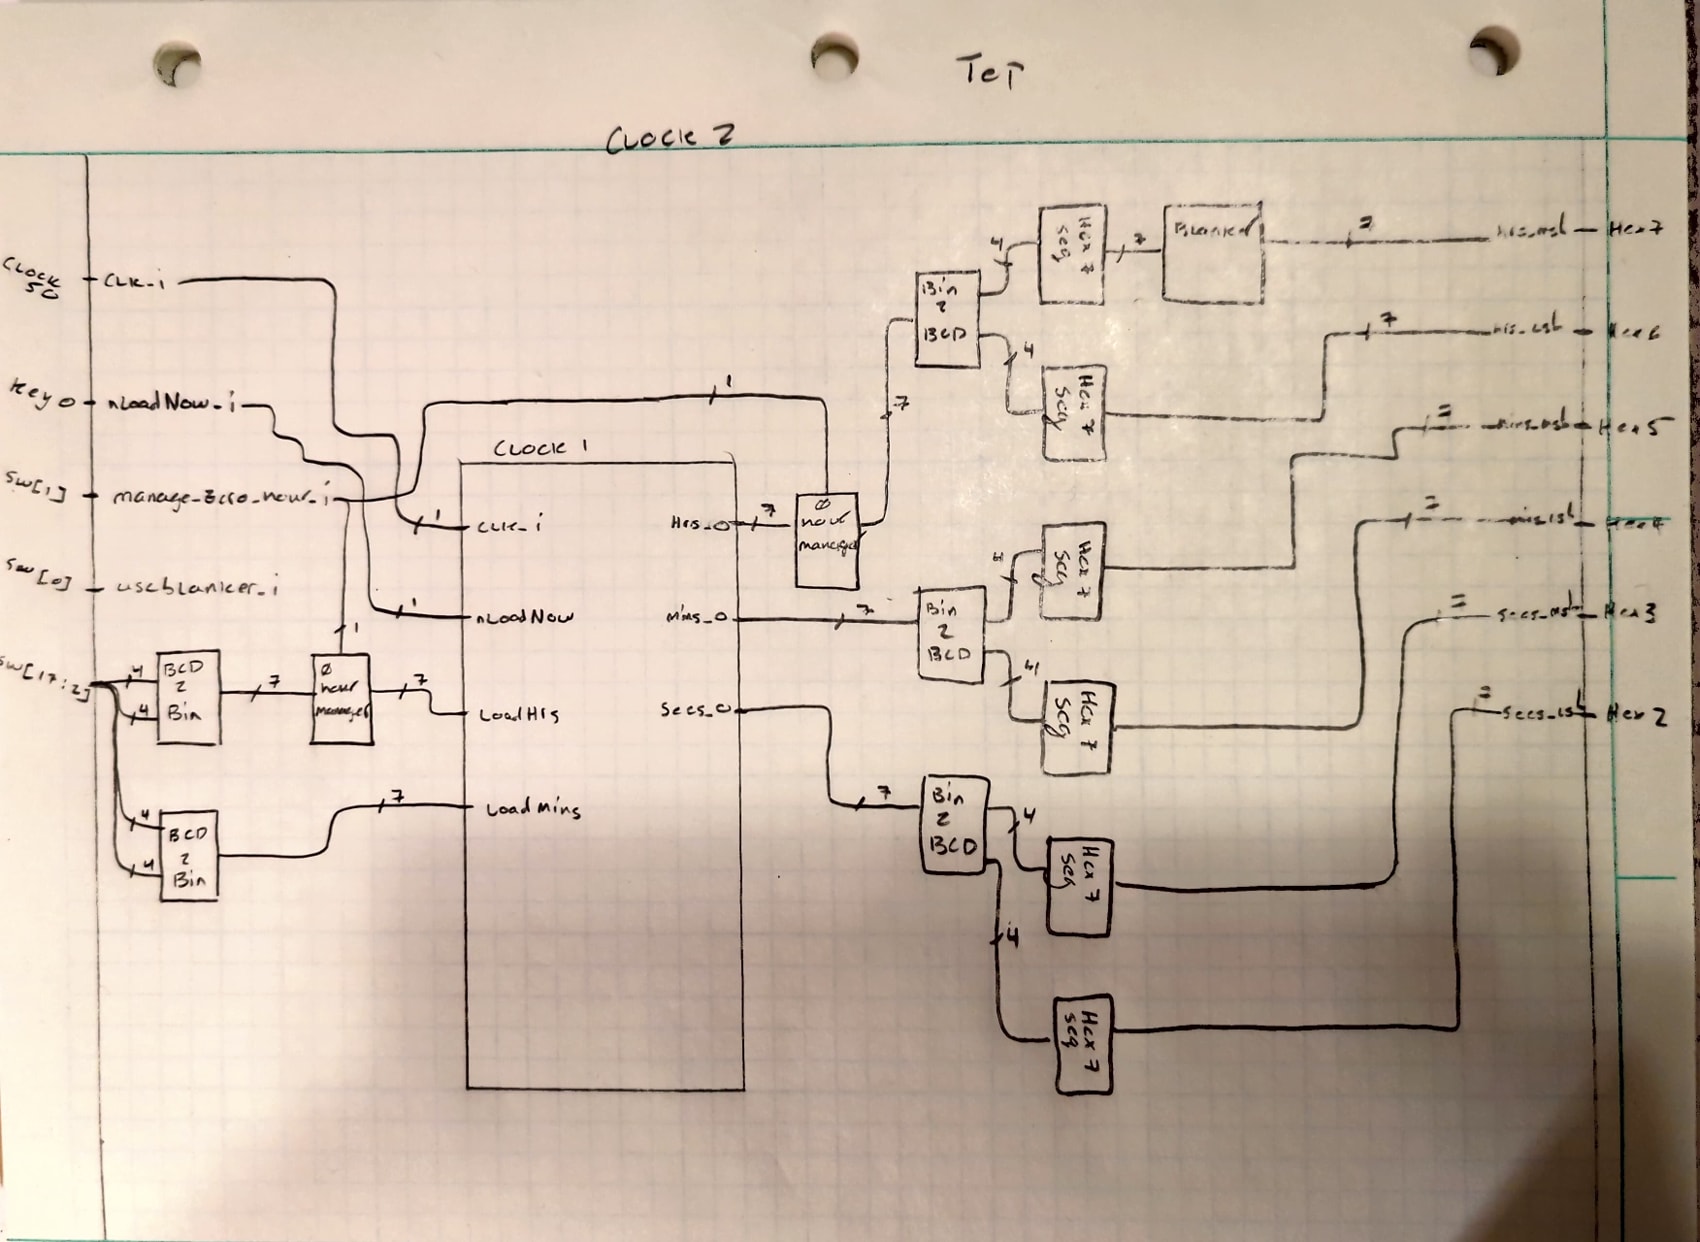 TCT
CLOCK 2
CLOCK
50
CLK_i
Key 0
nLoadNow_i
SW[1]
manage_zero_hour_i
SW[0]
useblanker_i
SW[17:2]
4
4
BCD
2
Bin
7
1
Ø
hour
manager
7
4
4
BCD
2
Bin
7
CLOCK 1
1
CLK_i
1
nLoadNow
LoadHrs
LoadMins
Hrs_o
mins_o
Secs_o
1
7
Ø
hour
manager
7
Bin
2
BCD
4
4
Hex 7
seg
7
Blanker
7
hrs_msb
Hex 7
Hex 7
seg
7
hrs_lsb
Hex 6
7
Bin
2
BCD
4
Hex 7
seg
mins_msb
Hex 5
4
Hex 7
seg
mins_lsb
Hex 4
7
Bin
2
BCD
4
Hex 7
seg
secs_msb
Hex 3
4
Hex 7
seg
secs_lsb
Hex 2